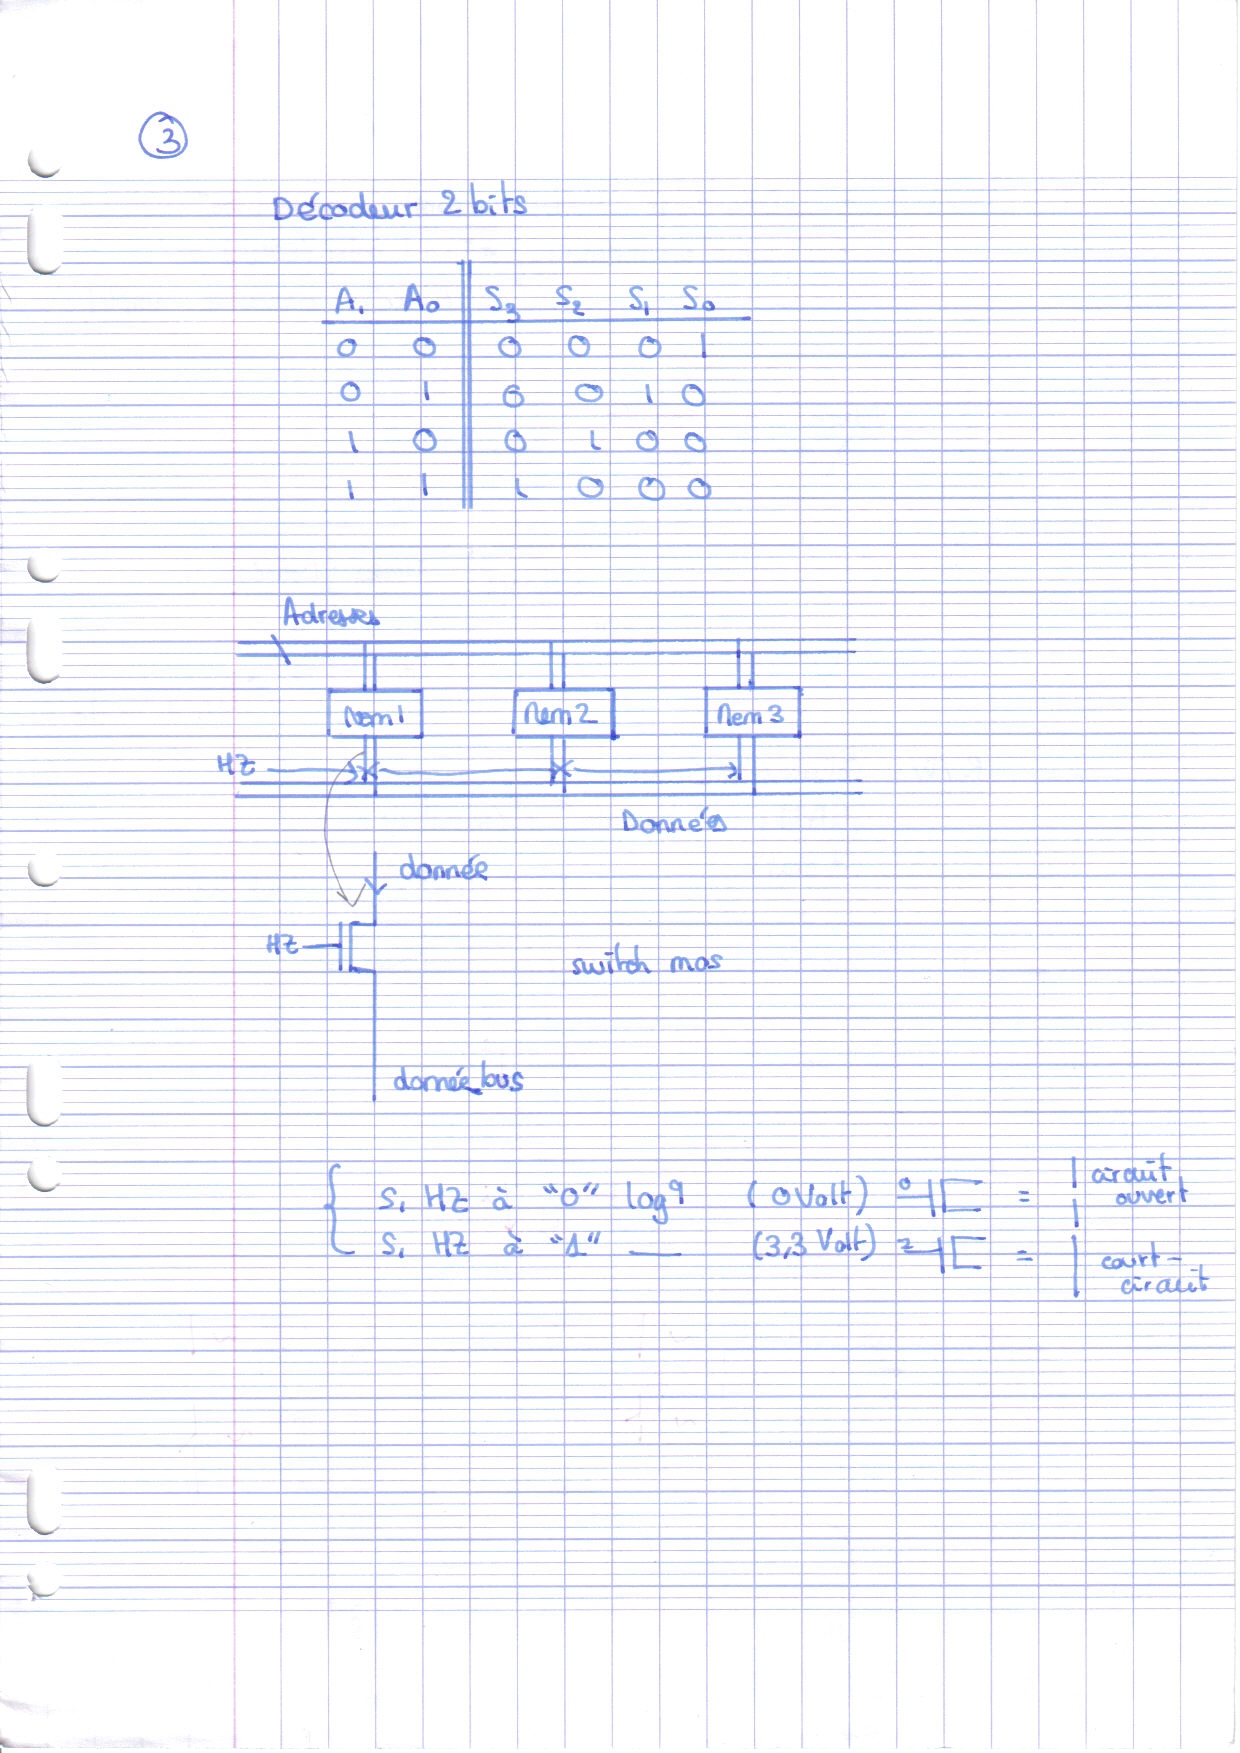 3
Décodeur 2 bits
A1 A0 S3 S2 S1 S0
0 0 0 0 0 1
0 1 0 0 1 0
1 0 0 1 0 0
1 1 1 0 0 0
Adresses
Mem1 Mem2 Mem3
HZ
Données
donnée
HZ
switch mos
donnée_bus
Si HZ à "0" logq (0 Volt) 0 = circuit
ouvert
Si HZ à "1" (3,3 Volt) = court-
circuit